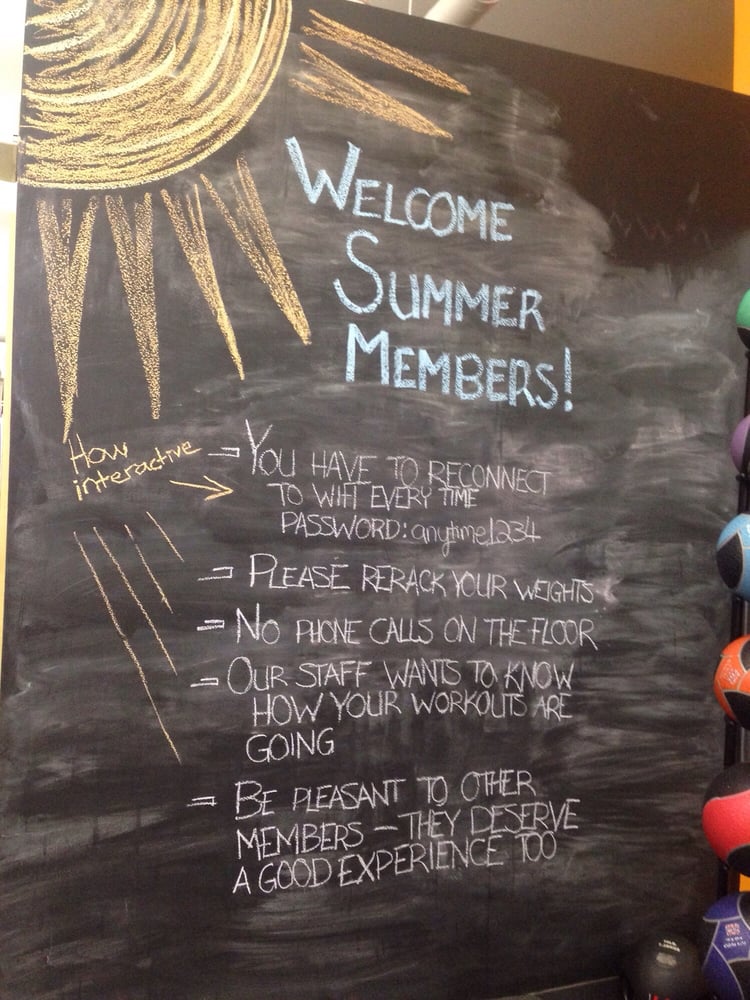 WELCOME
SUMMER
MEMBERS!
How
interactive
- YOU HAVE TO RECONNECT
TO WIFI EVERY TIME
PASSWORD: anytime1234
- PLEASE RERACK YOUR WEIGHTS
- NO PHONE CALLS ON THE FLOOR
- OUR STAFF WANTS TO KNOW
HOW YOUR WORKOUTS ARE
GOING
- BE PLEASANT TO OTHER
MEMBERS - THEY DESERVE
A GOOD EXPERIENCE TOO